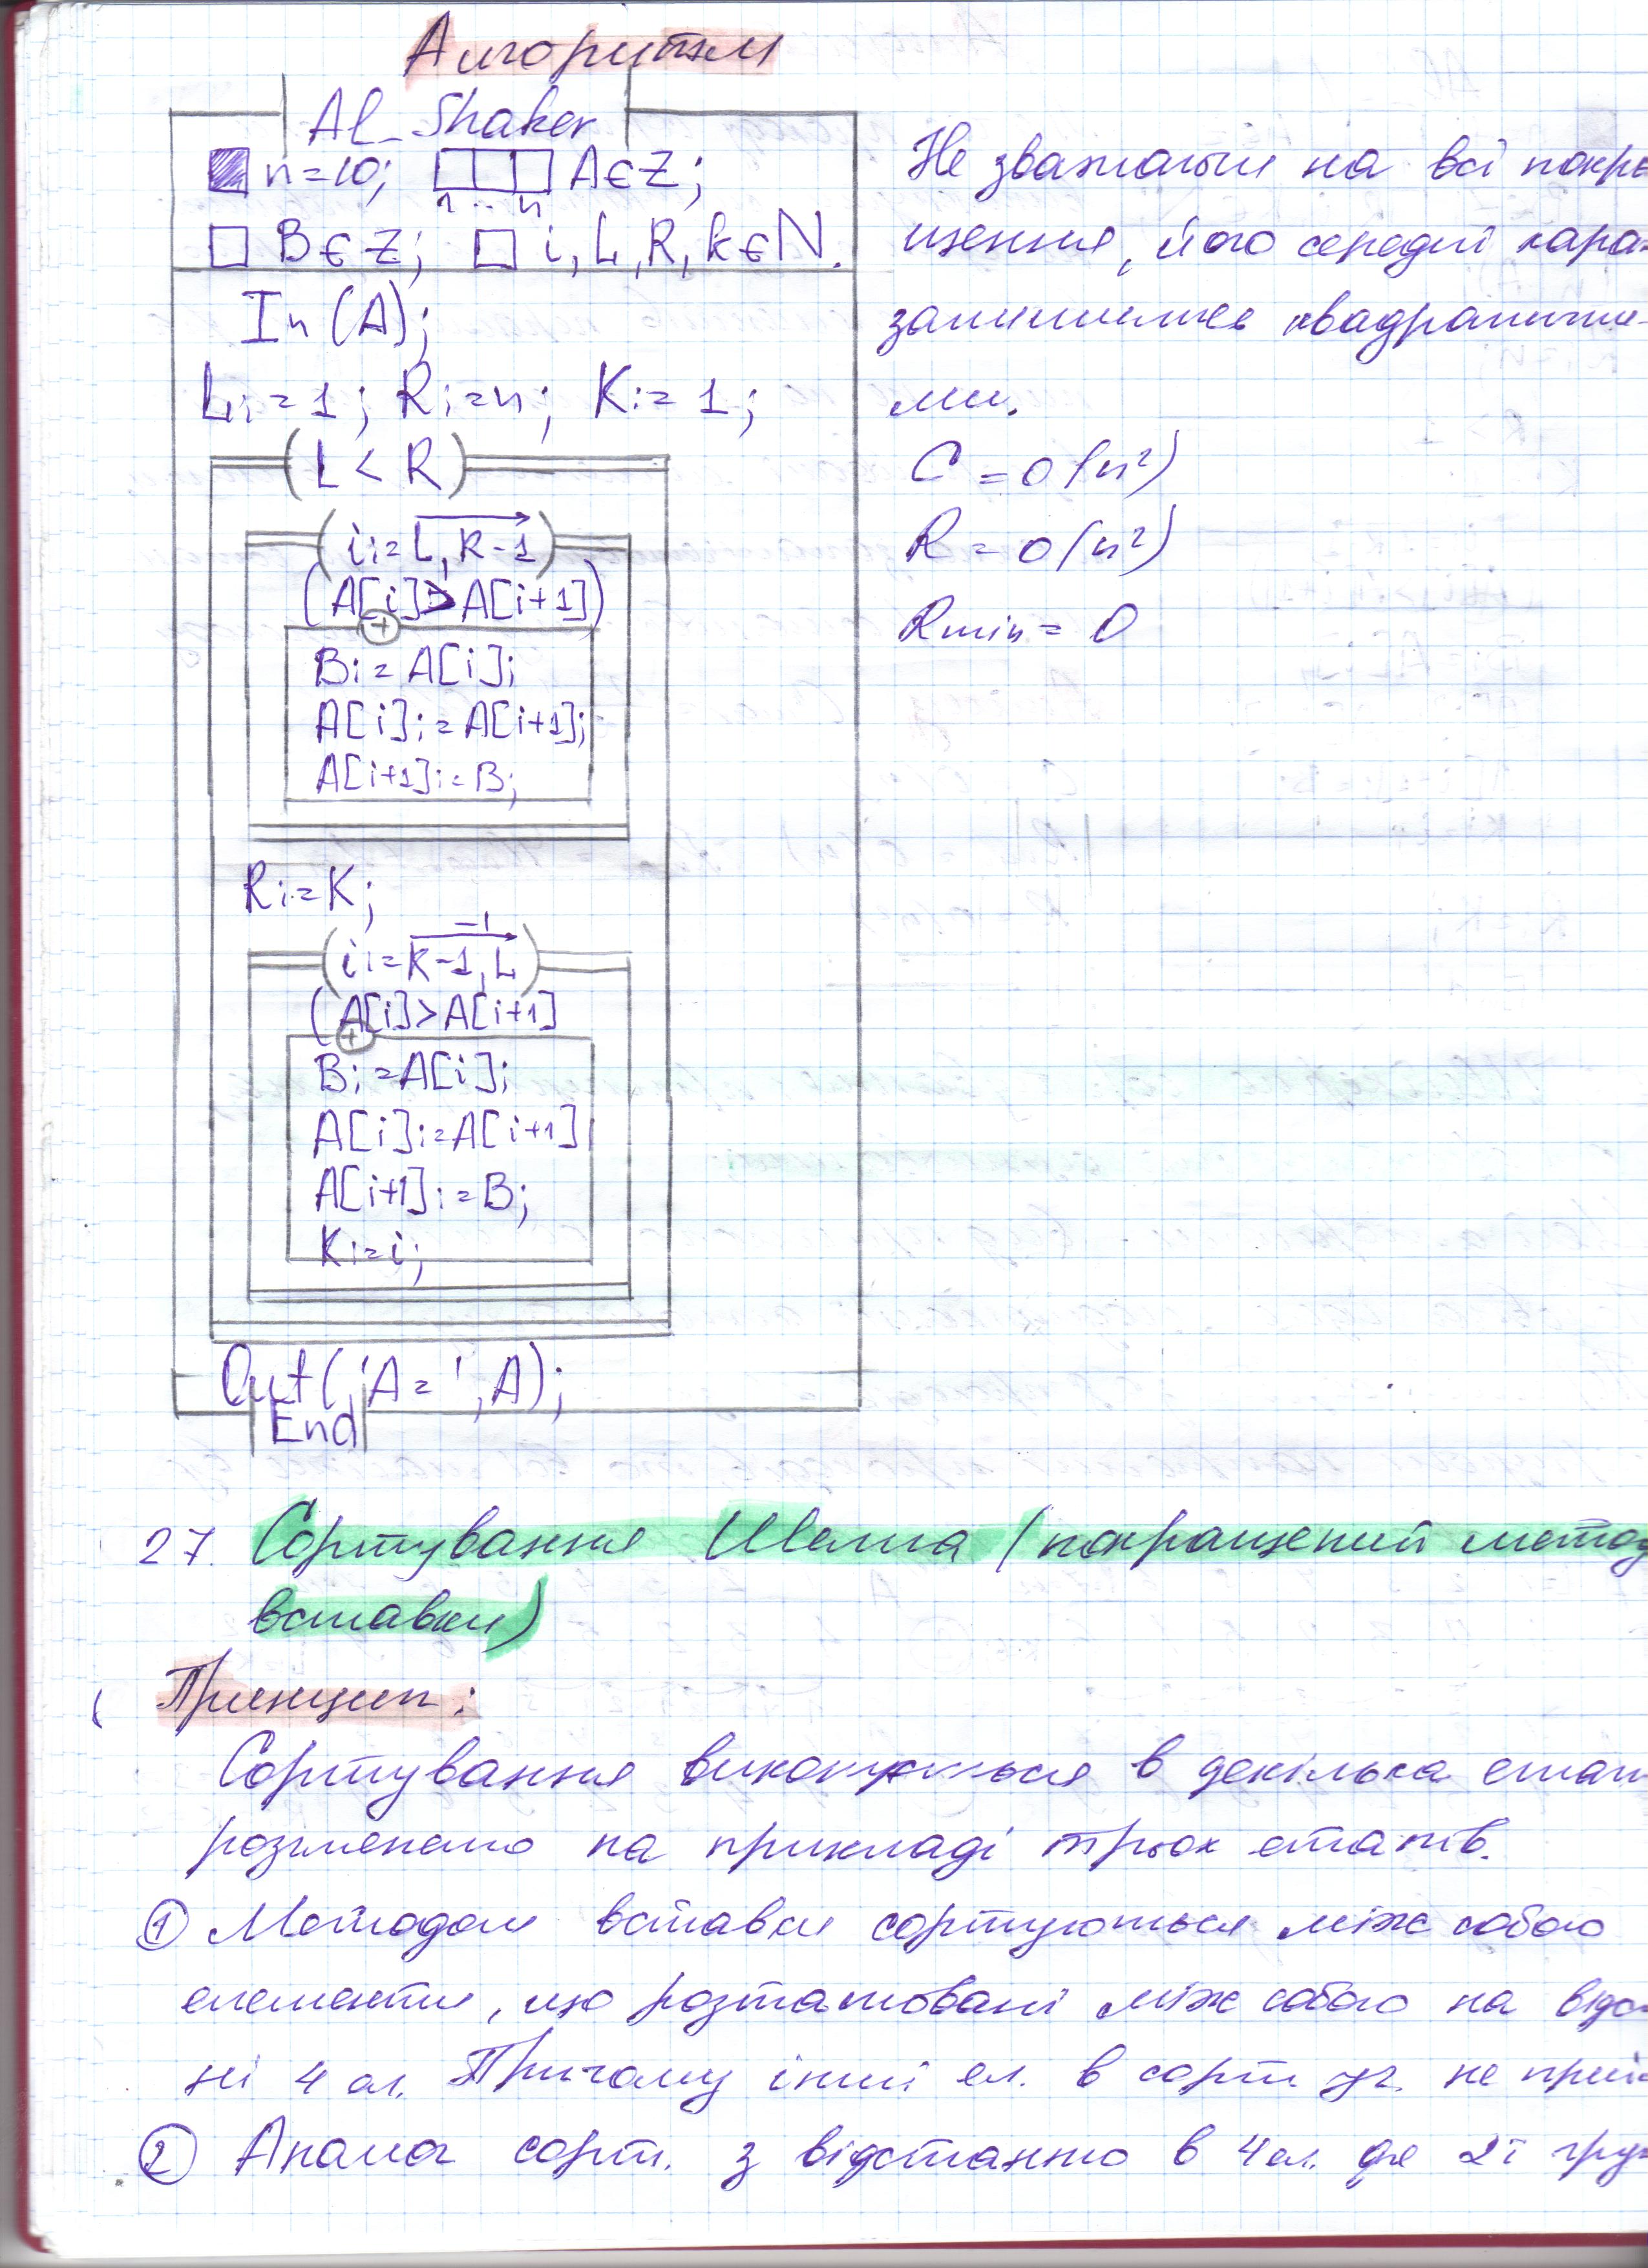 Алгоритм
Al_Shaker
n=10; A∈Z;
1..n
B∈Z; i, L, R, k∈N.
In(A);
L:=1; R:=n; K:=1;
(L < R)
(i:=L, R-1)
(A[i]>A[i+1])
+
B:=A[i];
A[i]:=A[i+1];
A[i+1]:=B;
R:=K;
-1
(i:=K-1, L)
(A[i]>A[i+1]
+
B:=A[i];
A[i]:=A[i+1]
A[i+1]:=B;
K:=i;
Out('A=', A);
End
Не зважаючи на всі покра
щення, його середні хара-
залишились квадратични-
ми.
C = O(n²)
R = O(n²)
Rmin = 0
27. Сортування Шелла (покращений метод
вставки)
Принцип:
Сортування виконується в декілька етап
розглянемо на прикладі трьох етапів.
① Методом вставки сортуються між собою
елементи, що розташовані між собою на відс
ні 4 ел. Причому інші ел. в сорт уч. не прий
② Аналог сорт. з відстанню в 4 ел. для 2ї гру